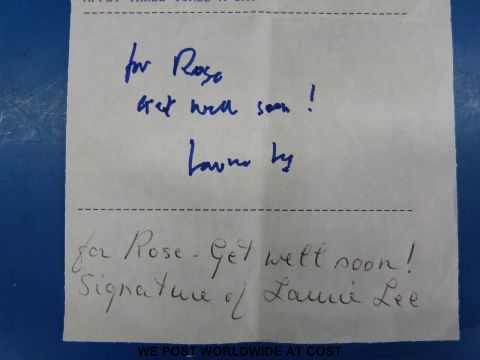 for Rose
Get well soon!
Laurie Lee
for Rose - Get well soon!
Signature of Laurie Lee
WE POST WORLDWIDE AT COST